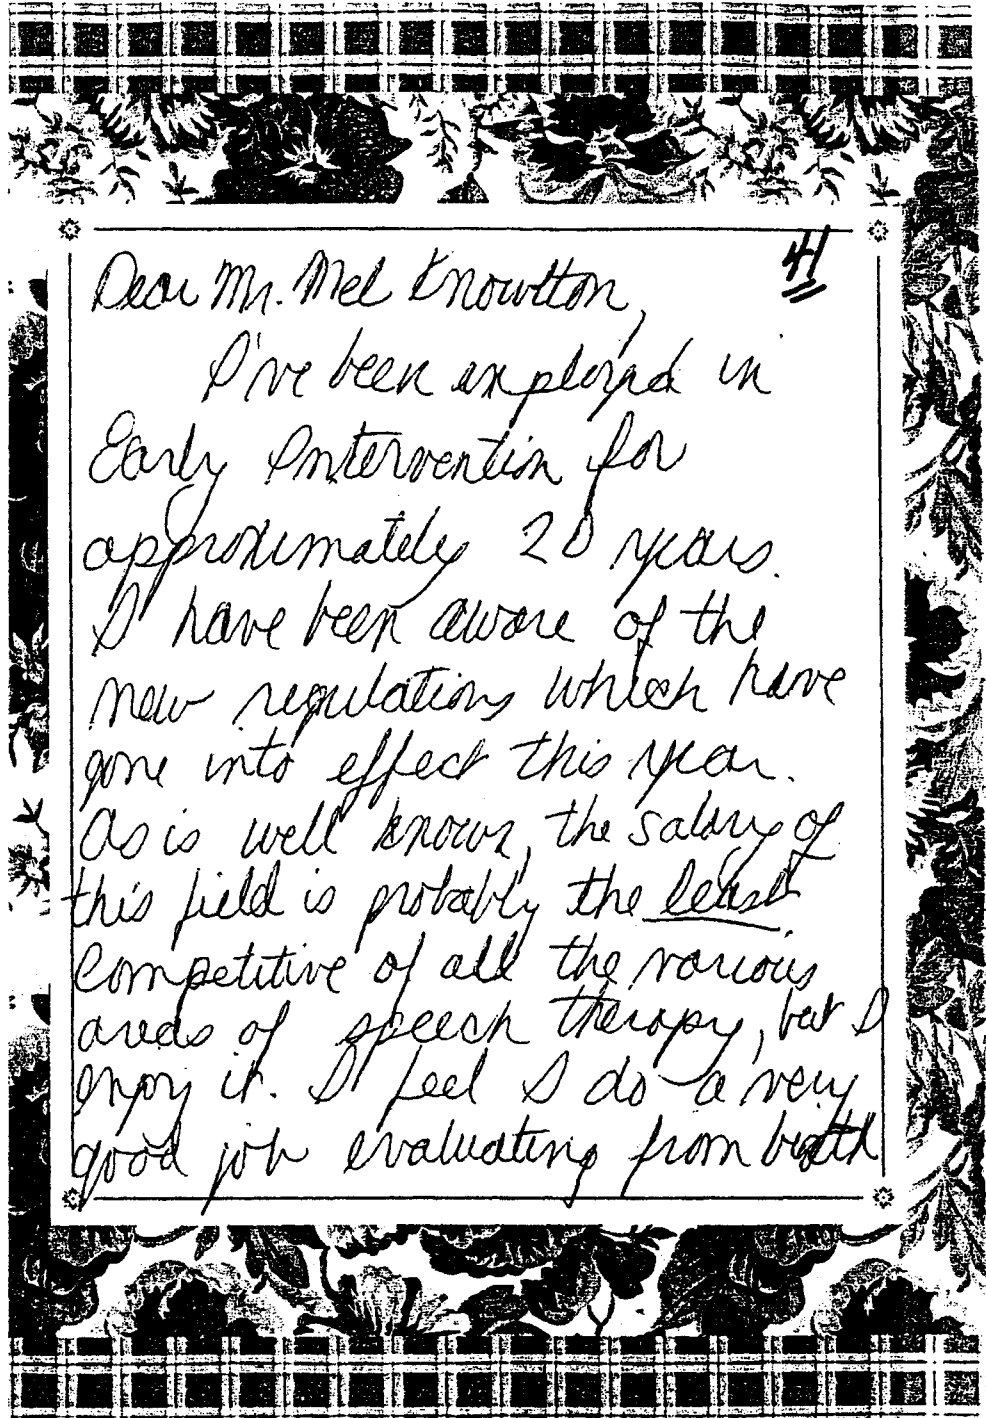 41
Dear Mr. Mel Knowlton,
I've been employed in
Early Intervention for
approximately 20 years.
I have been aware of the
new regulations which have
gone into effect this year.
As is well known, the salary of
this field is probably the least
competitive of all the various
areas of speech therapy, but I
enjoy it. I feel I do a very
good job evaluating from birth